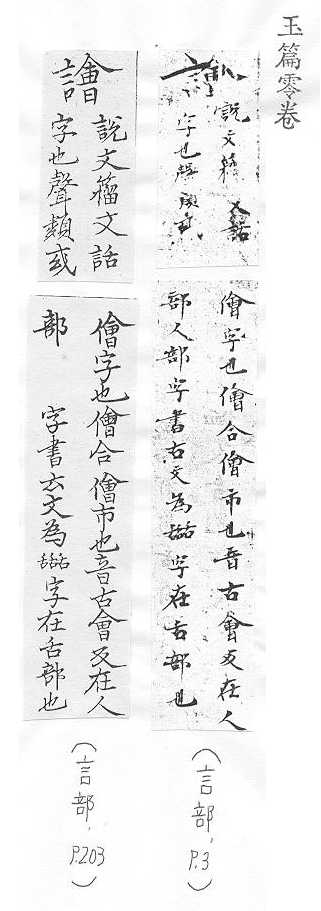 玉篇零卷
譮
說文籀文話
字也聲類或
儈字也儈合儈市也音古會反在人
部人部字書古文為字在舌部也
(言部,P.3)
譮
說文籀文話
字也聲類或
儈字也儈合儈市也音古會反在人
部 字書云文為字在舌部也
(言部,P.203)